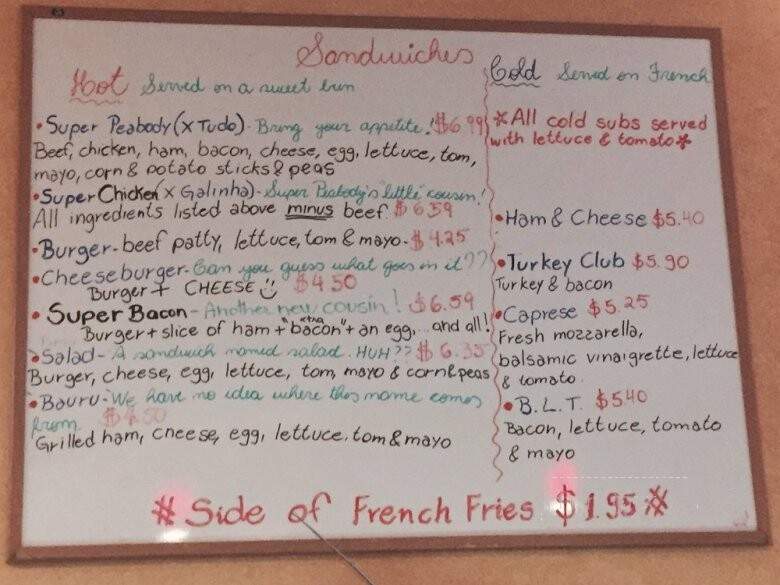 Sandwiches
Hot Served on a sweet bun
• Super Peabody (X Tudo) - Bring your appetite! $6.99
Beef, chicken, ham, bacon, cheese, egg, lettuce, tom,
mayo, corn & potato sticks & peas
• Super Chicken (X Galinha) - Super Peabody's "little" cousin!
All ingredients listed above minus beef $6.59
• Burger - beef patty, lettuce, tom & mayo - $4.25
• Cheeseburger - Can you guess what goes on it??
Burger + CHEESE $4.50
• Super Bacon - Another new cousin! $6.59
Burger + slice of ham + "xtra bacon" + an egg, and all!
• Salad - A sandwich named salad. HUH?? $6.35
Burger, cheese, egg, lettuce, tom, mayo & corn & peas
• Bauru - We have no idea where this name comes
from. $4.50
Grilled ham, cheese, egg, lettuce, tom & mayo
Cold Served on French
*All cold subs served
with lettuce & tomato*
• Ham & Cheese $5.40
• Turkey Club $5.90
Turkey & bacon
• Caprese $5.25
Fresh mozzarella,
balsamic vinaigrette, lettuce
& tomato.
• B.L.T. $5.40
Bacon, lettuce, tomato
& mayo
* Side of French Fries $1.95 *